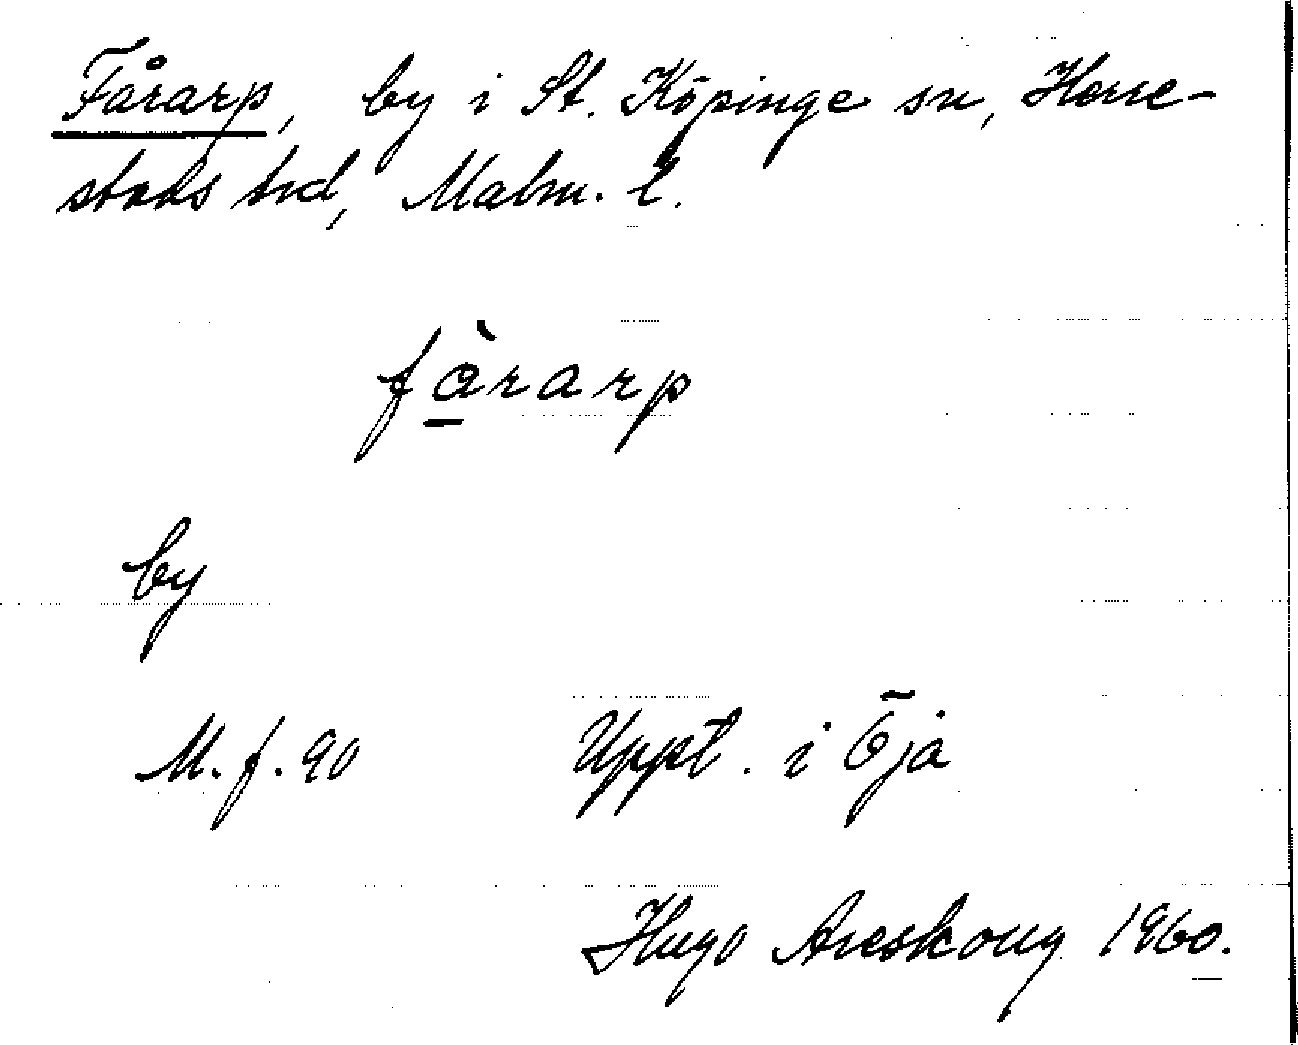 Fårarp, by i St. Köpinge sn, Herre-
stads hd, Malm. l.
fàrarp
by
M. f. 90 Uppt. i Öja
Hugo Areskoug 1960.